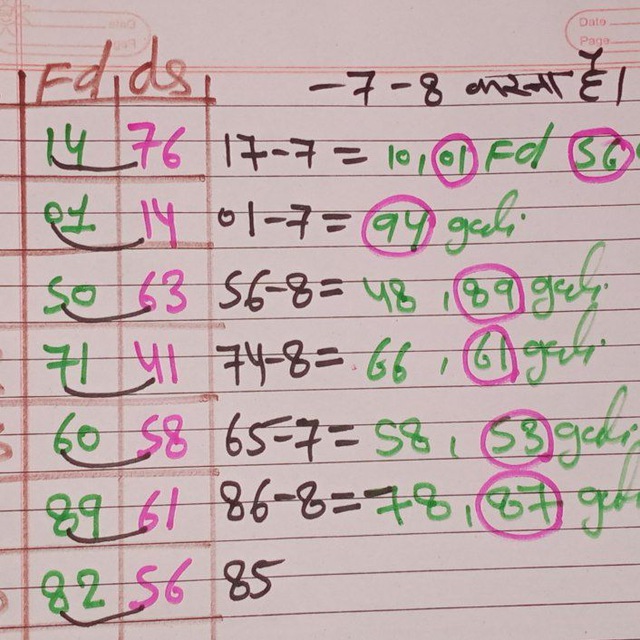 Date
Page
Fd ds -7-8 करना है।
14 76 17-7= 10,01 Fd 56
01 14 01-7= 94 gali
50 63 56-8= 48 , 89 gali
71 41 74-8= 66 , 61 gali
60 58 65-7= 58 , 53 gali
89 61 86-8= 78 , 87 gali
82 56 85